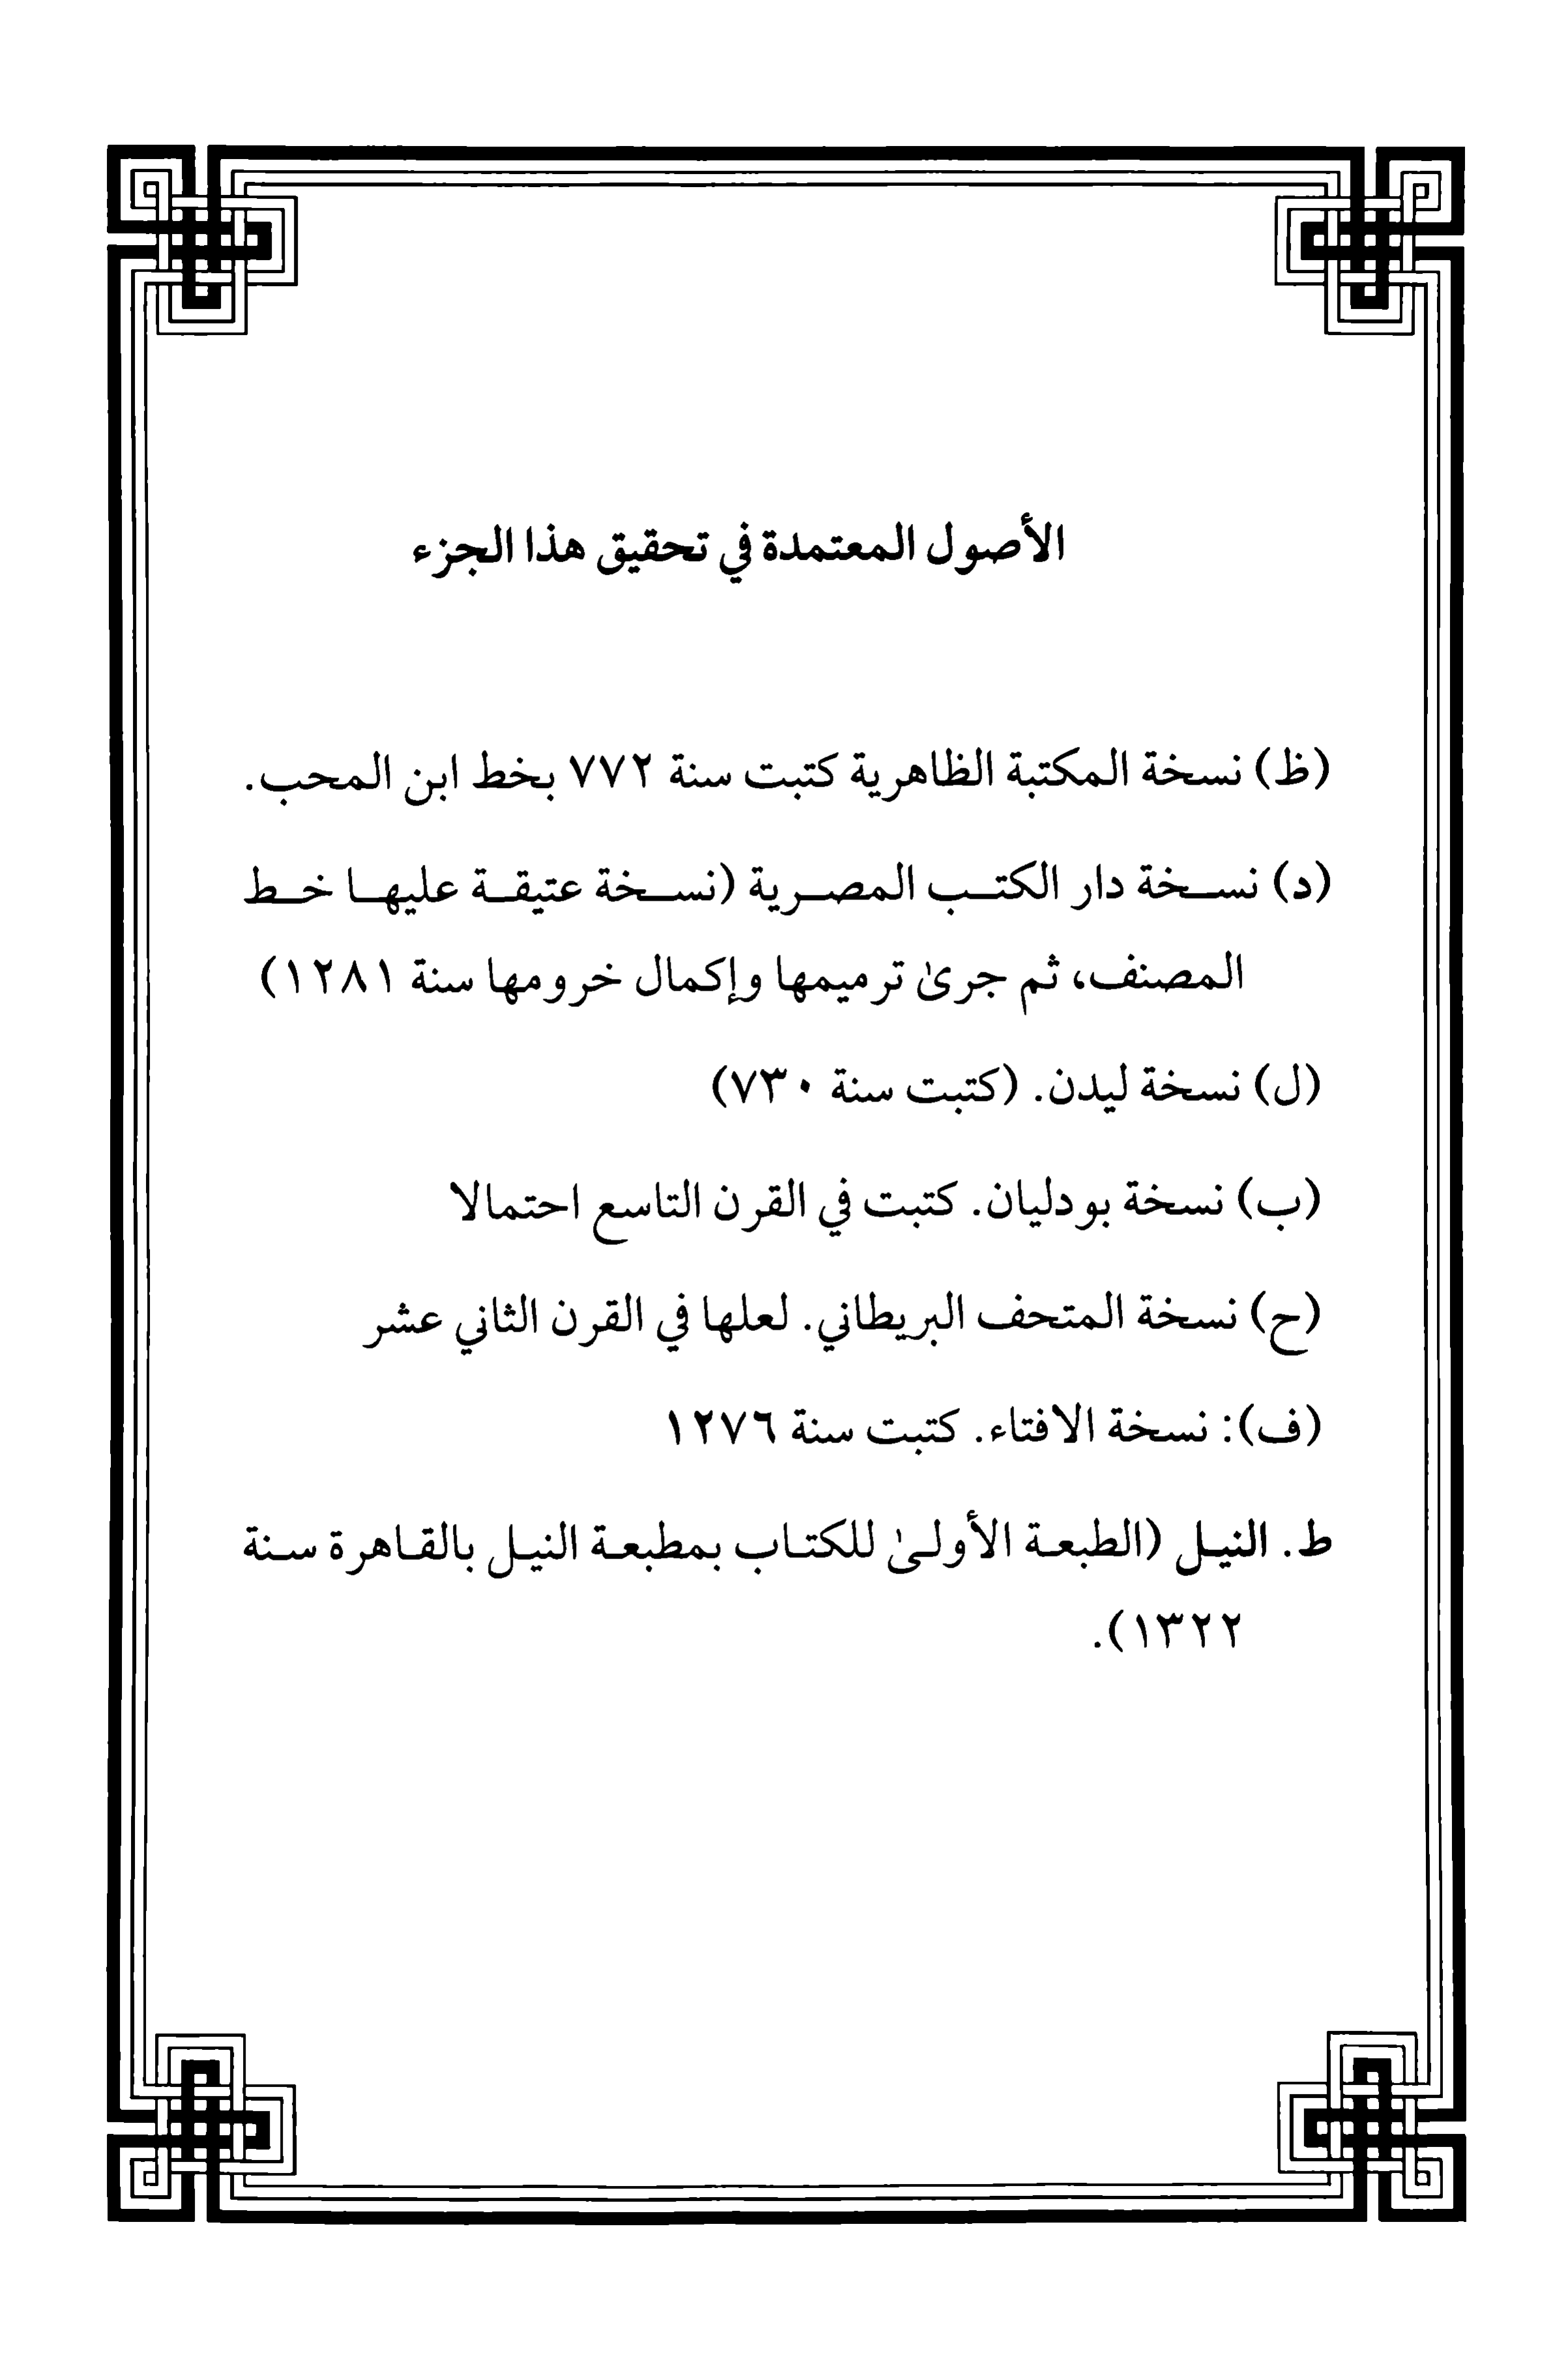 الأصول المعتمدة في تحقيق هذا الجزء
(ظ) نسخة المكتبة الظاهرية كتبت سنة ٧٧٢ بخط ابن المحب.
(د) نسخة دار الكتب المصرية (نسخة عتيقة عليها خط
المصنف، ثم جرىٰ ترميمها وإكمال خرومها سنة ١٢٨١)
(ل) نسخة ليدن. (كتبت سنة ٧٣٠)
(ب) نسخة بودليان. كتبت في القرن التاسع احتمالا
(ح) نسخة المتحف البريطاني. لعلها في القرن الثاني عشر
(ف): نسخة الافتاء. كتبت سنة ١٢٧٦
ط. النيل (الطبعة الأولىٰ للكتاب بمطبعة النيل بالقاهرة سنة
١٣٢٢).